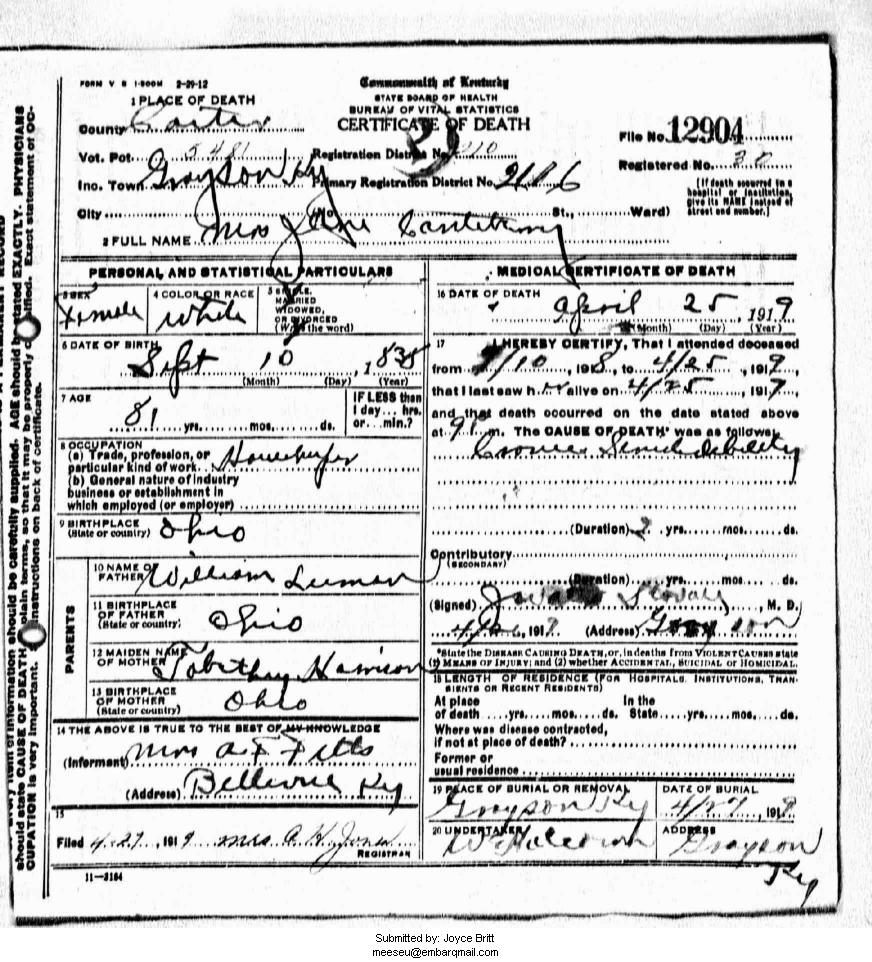 FORM V S 1-500M 2-29-12
Commonwealth of Kentucky
STATE BOARD OF HEALTH
BUREAU OF VITAL STATISTICS
CERTIFICATE OF DEATH
1 PLACE OF DEATH
County Carter
Vot. Pct. 5481
Inc. Town Grayson Ky
City
Registration District No. 210
Primary Registration District No. 2106
(No. St., Ward)
File No. 12904
Registered No. 30
[If death occurred in a
hospital or institution,
give its NAME instead of
street and number.]
2 FULL NAME Mrs Jane
PERSONAL AND STATISTICAL PARTICULARS
3 SEX Female
4 COLOR OR RACE White
5 SINGLE,
MARRIED
WIDOWED,
OR DIVORCED
(Write the word)
6 DATE OF BIRTH
Sept 10, 1838
(Month) (Day) (Year)
7 AGE
81 yrs. mos. ds.
IF LESS than
1 day... hrs.
or... min.?
8 OCCUPATION
(a) Trade, profession, or
particular kind of work Housekeeper
(b) General nature of industry
business or establishment in
which employed (or employer)
9 BIRTHPLACE
(State or country) Ohio
PARENTS
10 NAME OF
FATHER William Luman
11 BIRTHPLACE
OF FATHER
(State or country) Ohio
12 MAIDEN NAME
OF MOTHER Harrison
13 BIRTHPLACE
OF MOTHER
(State or country) Ohio
14 THE ABOVE IS TRUE TO THE BEST OF MY KNOWLEDGE
(Informant) Mrs A F Fitts
(Address) Bellevue Ky
15
Filed 4-27, 1919 Mrs A. H. Jones
REGISTRAR
11-3184
MEDICAL CERTIFICATE OF DEATH
16 DATE OF DEATH
April 25, 1919
(Month) (Day) (Year)
17 I HEREBY CERTIFY, That I attended deceased
from 1/10, 1918, to 4/25, 1919
that I last saw her alive on 4/25, 1919
and that death occurred on the date stated above
at 9 m. The CAUSE OF DEATH* was as follows:
Senile debility
(Duration) 2 yrs. mos. ds.
Contributory
(SECONDARY)
(Duration) yrs. mos. ds.
(Signed) Stovall, M. D.
4/26, 1919 (Address) Grayson
*State the DISEASE CAUSING DEATH, or, in deaths from VIOLENT CAUSES state
(1) MEANS OF INJURY; and (2) whether ACCIDENTAL, SUICIDAL OR HOMICIDAL.
18 LENGTH OF RESIDENCE (FOR HOSPITALS, INSTITUTIONS, TRAN-
SIENTS OR RECENT RESIDENTS)
At place In the
of death yrs. mos. ds. State yrs. mos. ds.
Where was disease contracted,
if not at place of death?
Former or
usual residence
19 PLACE OF BURIAL OR REMOVAL
Grayson Ky
DATE OF BURIAL
4/27, 1919
20 UNDERTAKER
ADDRESS
Grayson
Ky
should state CAUSE OF DEATH in plain terms, so that it may be properly classified. Exact statement of OC-
CUPATION is very important. Instructions on back of certificate.
Submitted by: Joyce Britt
meeseu@embarqmail.com